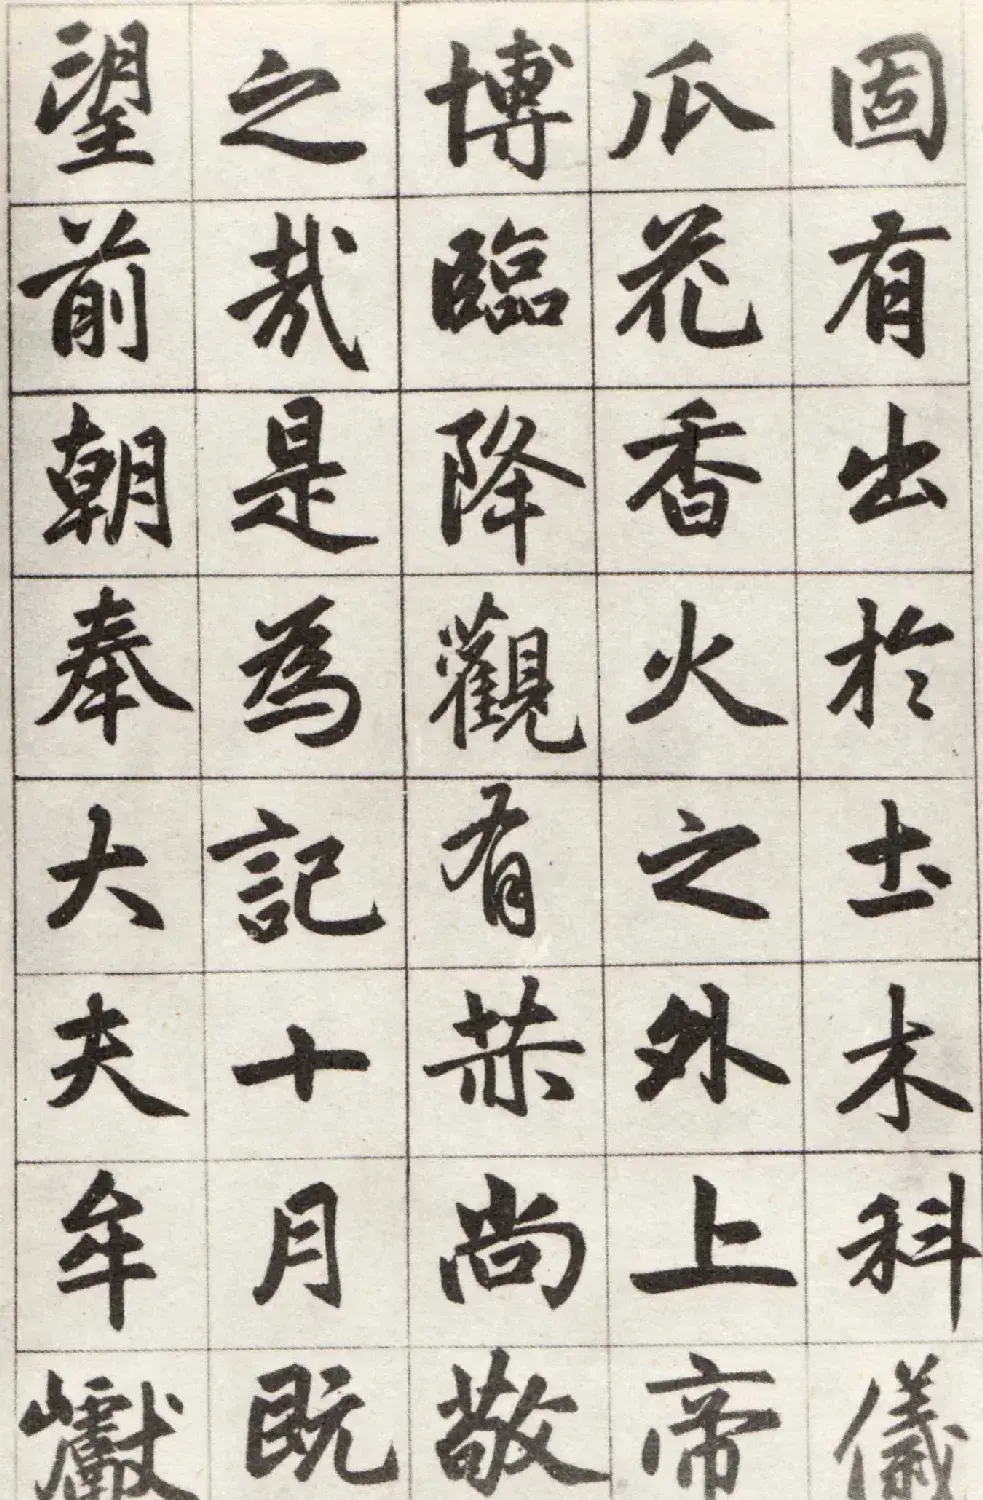 固有出於土木科儀
瓜花香火之外上帝
博臨降觀有赫尚敬
之哉是為記十月既
望前朝奉大夫牟巘